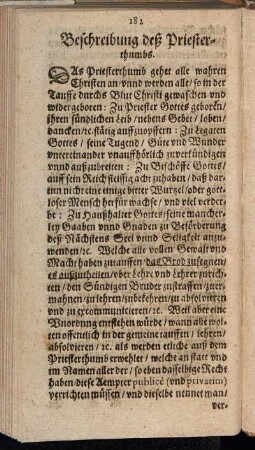 182
Beschreibung deß Priester-
thumbs.
DAs Priesterthumb gehet alle wahren
Christen an/ vnnd werden alle/ so in der
Tauffe durchs Blut Christi gewaschen vnd
widergeboren: Zu Priester Gottes geboren/
ihren sündlichen Leib/ nebens Gebet/ loben/
dancken/ ꝛc. stätig auffzuopffern: Zu Legaten
Gottes/ seine Tugend/ Güte vnd Wunder
vntereinander vnauffhörlich zuverkündigen
vnnd außzubreiten: Zu Beschöffe Gottes/
auff sein Reich fleissig acht zuhaben/ daß dar-
inn nicht eine einige bitter Wurtzel/ oder gott-
loser Mensch herfür wachse/ vnd viel verder-
be: Zu Haußhalter Gottes/ seine mancher-
ley Gaaben vnnd Gnaden zu Beförderung
deß Nächstens Seel vnnd Seligkeit anzu-
wenden/ ꝛc. Welche alle vollen Gewalt vnd
Macht haben zutauffen/ das Brod zusegnen/
es außzutheilen/ ober Lehre vnd Lehrer zurich-
ten/ den Sündigen Bruder zustraffen/ zuer-
mahnen/ zu lehren/ zubekehren/ zu absolviren
vnd zu excommunicieren/ ꝛc. Weil aber eine
Vnordung entstehen würde/ wann alle wol-
ten offentlich in der gemein tauffen/ lehren/
absolvieren/ ꝛc. als werden etliche auß dem
Priesterthumb erwehlet/ welche an statt vnd
im Namen aller der/ so eben dasselbige Recht
haben/ diese Aempter publicè (vnd privatim)
verrichten müssen/ vnd dieselbe nennet man/
ver-